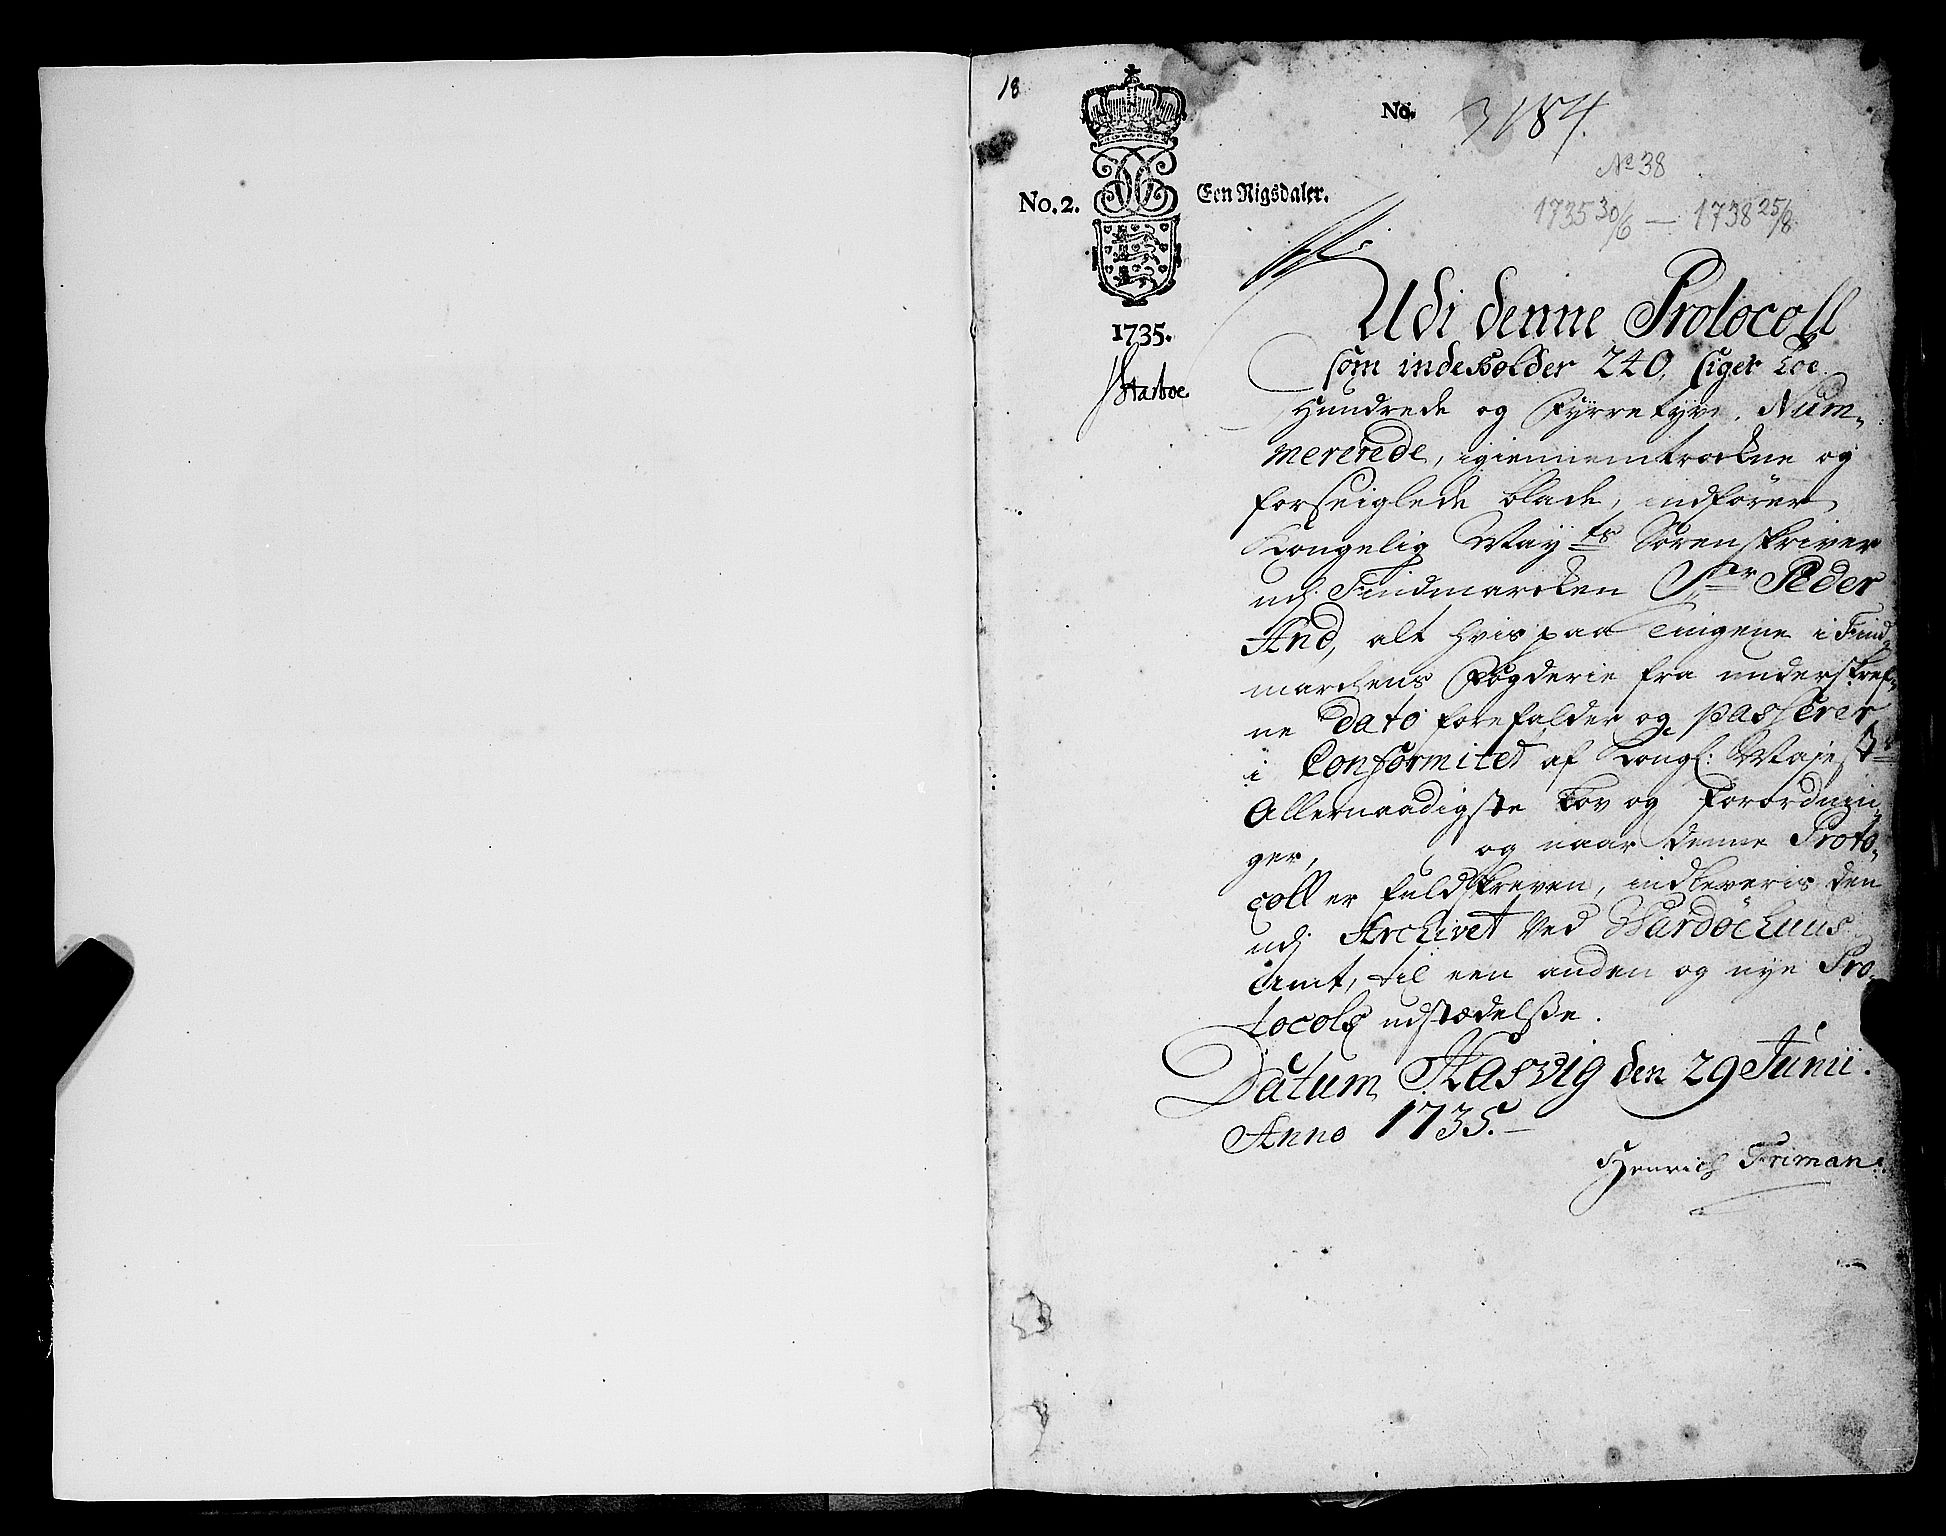 18
No. 3184.
No 38
No. 2. Een Rigsdaler.
1735 30/6 — 1738 25/8
1735.
Udi denne Protocoll
som indeholder 240, siger Toe
Hundrede og Fyrretyve, Num-
mererede, igiennemtrockne og
forseiglede blade, indfører
Kongelig May.ts Sorenskriver
udj Findmarcken Sr Peder
And, alt hvis paa Tingene i Find-
marckens Fogderie fra underskref-
ne Dato forefalder og passerer
i Conformited af Kongl: Majests
Allernaadigste Lov og Forordnin-
ger, og naar denne Proto-
coll er fuldskreven, indleveris den
udj Archivet ved Wardøehuus
Amt, til een anden og nye Pro-
tocols udstædelsse.
Datum Hasvig den 29 Junii.
Anno 1735.
Henrich Friman